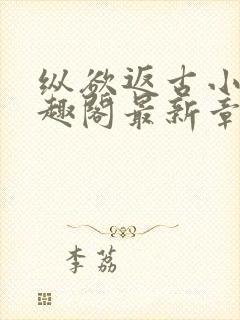 纵欲返古小
趣阁最新章
李荔